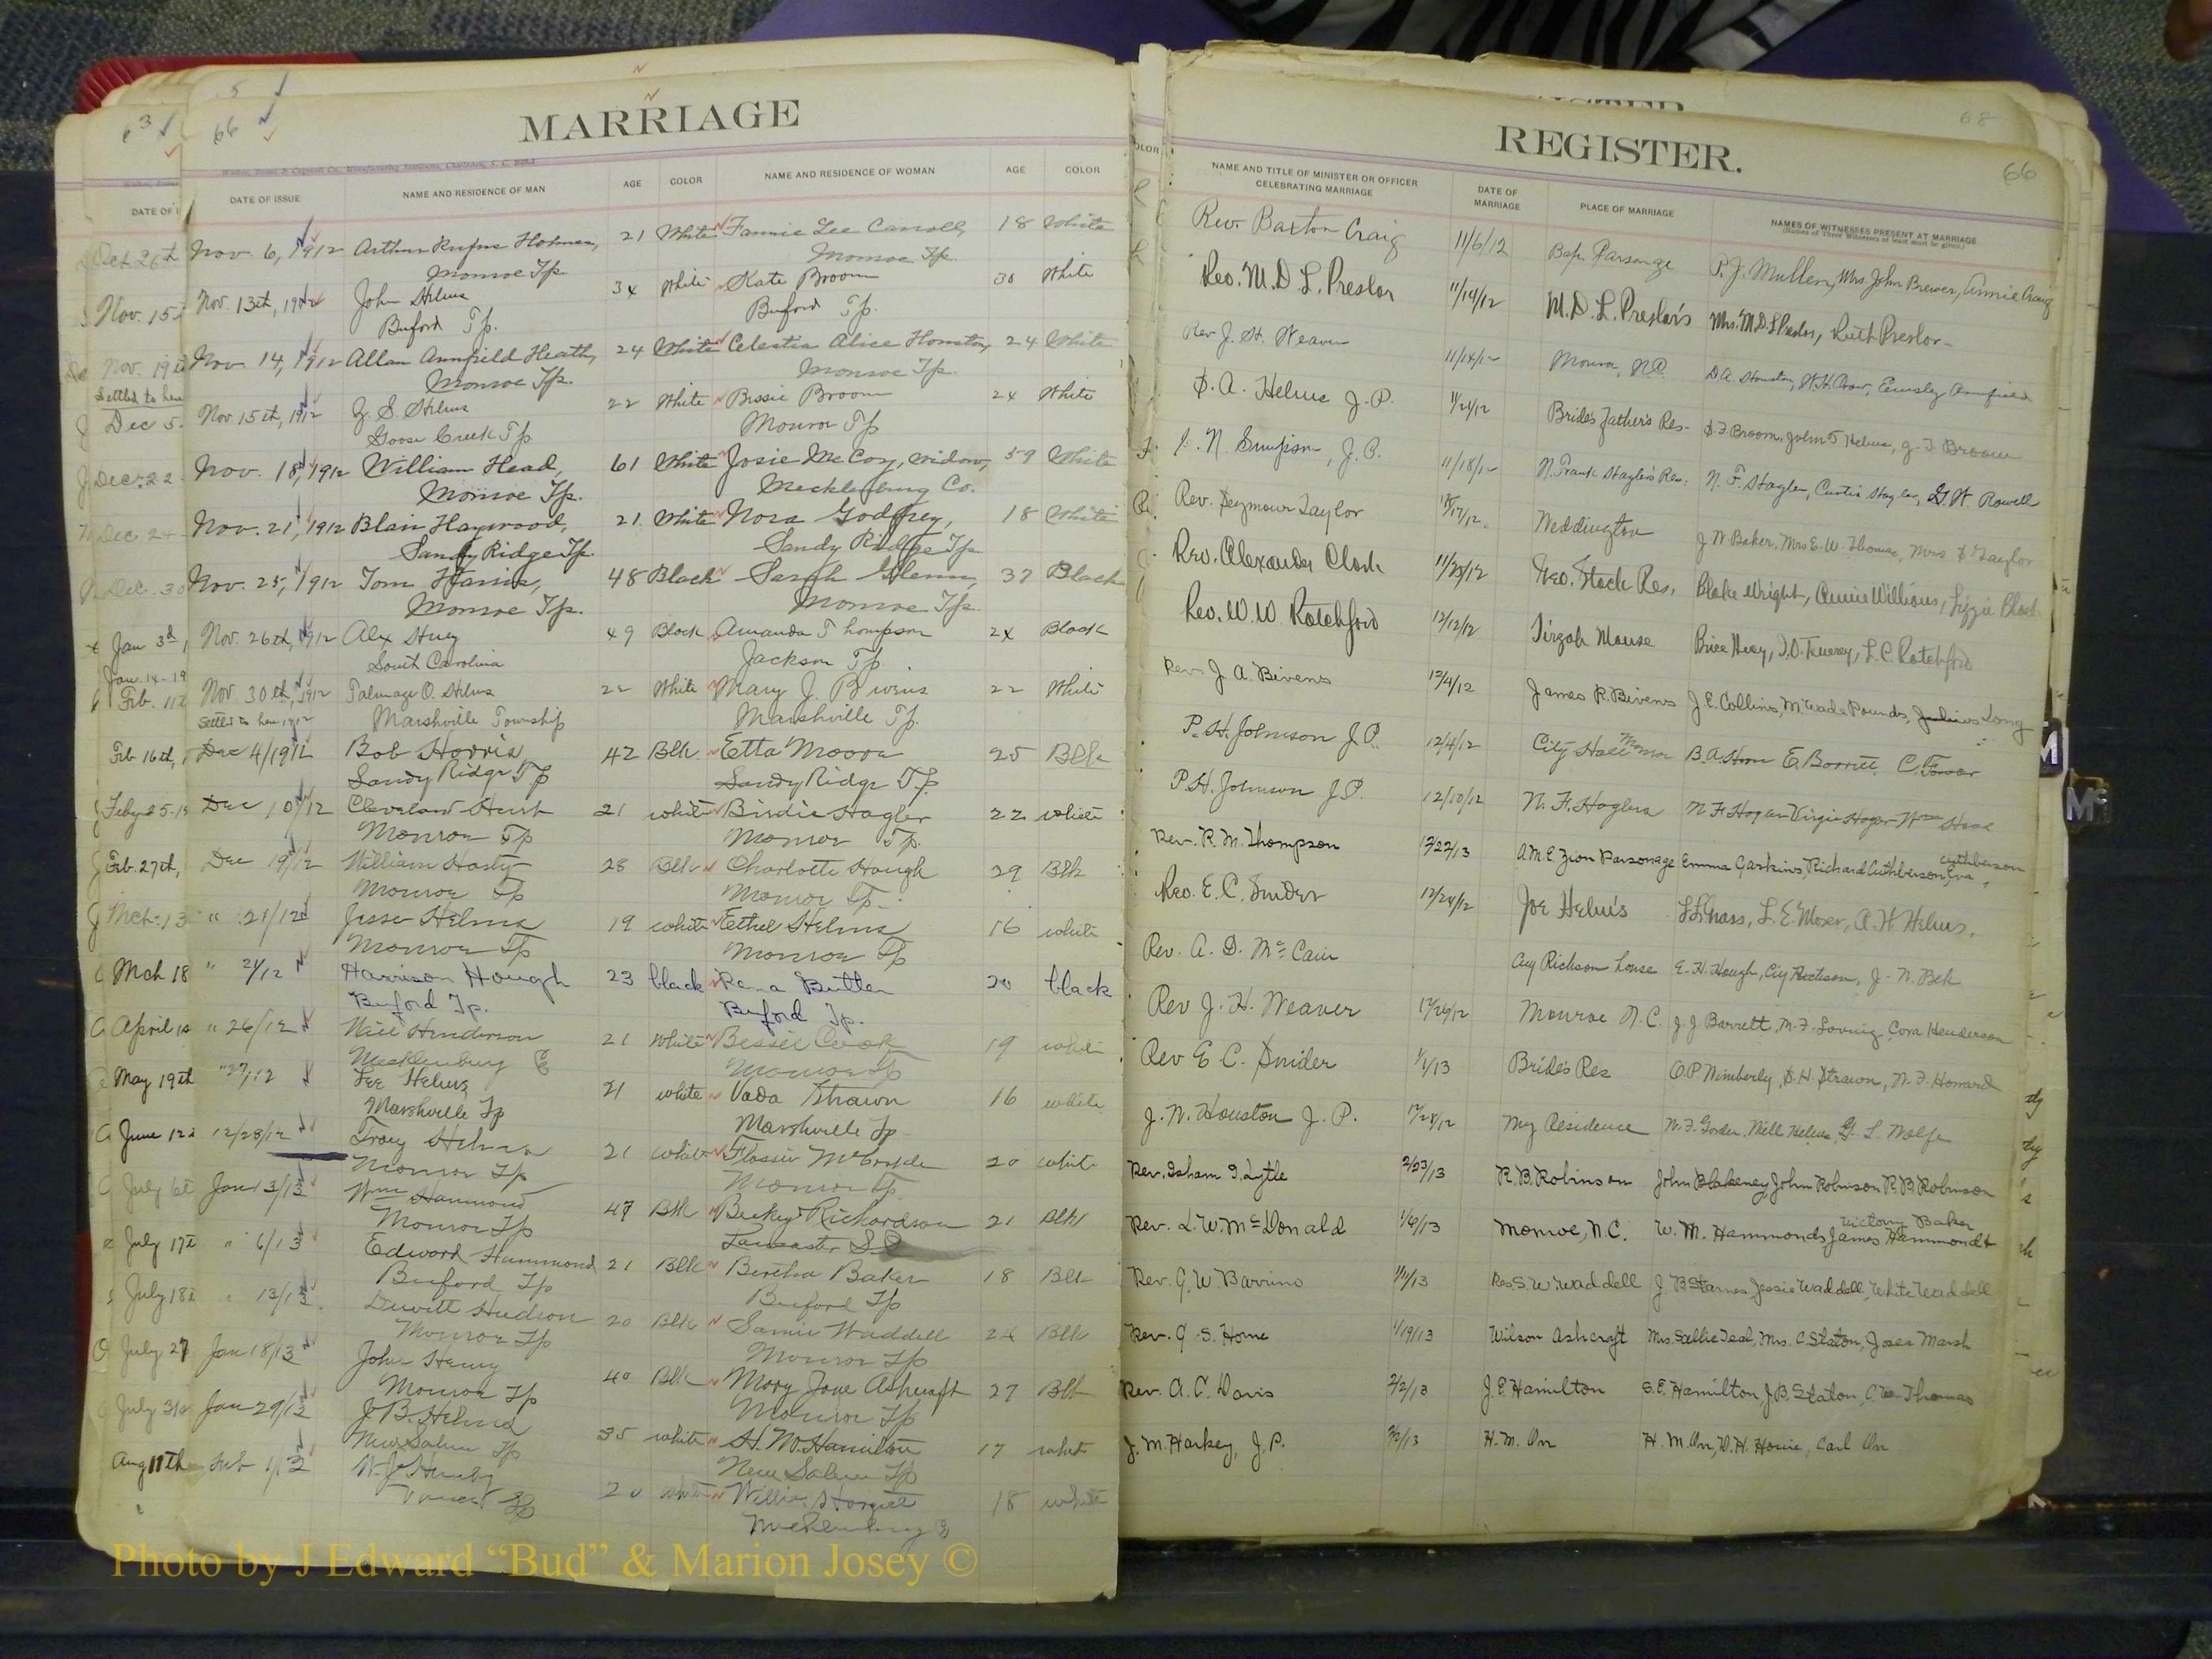 MARRIAGE
66
DATE OF ISSUE NAME AND RESIDENCE OF MAN AGE COLOR NAME AND RESIDENCE OF WOMAN AGE COLOR
Nov. 6, 1912 Arthur Rufus Holmes, 21 White Fannie Lee Carroll, 18 White
Monroe Tp. Monroe Tp.
Nov. 13th, 1912 John Helms 34 White Kate Broom 30 White
Buford Tp. Buford Tp.
Nov. 14, 1912 Allan Armfield Heath, 24 White Celestia Alice Houston, 24 White
Monroe Tp. Monroe Tp.
Nov. 15th, 1912 Z. S. Helms 22 White Bessie Broom 24 White
Goose Creek Tp. Monroe Tp
Nov. 18, 1912 William Head, 61 White Josie McCoy, widow, 59 White
Monroe Tp. Mecklenburg Co.
Nov. 21, 1912 Blair Haywood, 21 White Nora Godfrey, 18 White
Sandy Ridge Tp. Sandy Ridge Tp.
Nov. 25, 1912 Tom Harris, 48 Black Sarah Glenn, 37 Black
Monroe Tp. Monroe Tp.
Nov. 26th, 1912 Alex Huey 49 Black Amanda Thompson 24 Black
South Carolina Jackson Tp.
Nov. 30th, 1912 Talmage O. Helms 22 White Mary J. Bivens 22 White
Settled to here 1912 Marshville Township Marshville Tp.
Dec 4/1912 Bob Harris 42 Blk Etta Moore 25 Blk
Sandy Ridge Tp Sandy Ridge Tp.
Dec 10/12 Cleveland Hurst 21 white Birdie Hagler 22 white
Monroe Tp Monroe Tp.
Dec 19/12 William Hasty 28 Blk Charlotte Hough 29 Blk
Monroe Tp Monroe Tp.
" 21/12 Jesse Helms 19 white Ethel Helms 16 white
Monroe Tp Monroe Tp
" 21/12 Harrison Hough 23 black Rena Butler 20 black
Buford Tp. Buford Tp.
" 26/12 Niel Henderson 21 White Bessie Cook 19 white
Mecklenburg Co Monroe Tp
" 27/12 Lee Helms 21 white Vada Strawn 16 white
Marshville Tp Marshville Tp
12/28/12 Tracy Helms 21 white Flossie 20 white
Monroe Tp Monroe Tp.
Jan 3/13 Wm Hammond 47 Blk Becky Richardson 21 Blk
Monroe Tp Lancaster S.C
" 6/13 Edward Hammond 21 Blk Bertha Baker 18 Blk
Buford Tp Buford Tp
" 13/13 Dewitt Hudson 20 Blk Samie Waddell 24 Blk
Monroe Tp Monroe Tp
Jan 18/13 John Henry 40 Blk Mary Jane Ashcraft 27 Blk
Monroe Tp Monroe Tp
Jan 29/13 J. B. Helms 35 white H. M. Hamilton 17 white
New Salem Tp New Salem Tp
Feb 1/13 20 white Willie Hargett 18 white
Mecklenburg Co
63
DATE OF I
Oct 26th
Nov. 15
Nov. 19th
Settled to here
Dec 5
Dec. 22
Dec. 24
Dec. 30
Jan 3rd,
Jan. 14-19
Feb. 11th
Feb 16th,
Feby 25-13
Feb. 27th,
Mch. 13
Mch 18
April 12
May 19th
June 12
July 6th
July 17th
July 18th
July 27
July 31st
Aug 11th
REGISTER.
68
66
NAME AND TITLE OF MINISTER OR OFFICER CELEBRATING MARRIAGE DATE OF MARRIAGE PLACE OF MARRIAGE NAMES OF WITNESSES PRESENT AT MARRIAGE
(Names of Three Witnesses at least must be given.)
Rev. Baxton Craig 11/6/12 Bap. Parsonage P. J. Mullen, Mrs John Brewer, Annie Craig
Rev. M. D. L. Preslar 11/14/12 M. D. L. Preslar's Mrs. M. D. L Preslar, Ruth Preslar
Rev J. H. Weaver 11/14/12 Monroe, N.C. D. A. Houston, Emsley Armfield
D. A. Helms J. P. 11/21/12 Bride's Father's Res- S. F. Broom, John T Helms, J. T. Broom
N. Simpson, J. P. 11/18/12 N. Frank Hagler's Res: N. F. Hagler, Curtis Hagler, G. W. Rowell
Rev. Seymour Taylor 12/17/12. Weddington J W Baker, Mrs E. W. Thomas, Mrs S Taylor
Rev. Alexander Clark 11/25/12 Geo. Stack Res, Blake Wright, Annie Williams, Lizzie Black
Rev. W. W. Ratchford 12/12/12 Tirzah Manse Brice Huey, L. C. Ratchford
Rev J. A. Bivens 12/4/12 James R. Bivens J. E. Collins, M. Wade Pounds, Julius Long
P. H. Johnson J. P. 12/4/12 City Hall Monroe B. A. Horn E. Barrett, C.
P. H. Johnson J. P. 12/10/12 N. F. Haglers N. F. Hagler Virgie Hagler Wm Head
Rev. R. M. Thompson 12/22/13 A.M.E. Zion Parsonage Emma Gaskins, Richard Cuthberson, Eva Cuthberson
Rev. E. C. Snider 12/24/12 Joe Helms's L. E. Moser, A. H Helms.
Rev. A. D. McCain Aug Richson house E. H. Hough, J. N. Belk
Rev J. H. Weaver 12/26/12 Monroe N. C. J. J Barrett, M. F. Loving, Cora Henderson
Rev E C. Snider 1/1/13 Brides Res O. P Wimberly, S. H. Strawn, N. F. Howard
J. W. Houston J. P. 12/28/12 My Residence N. F. Gordon, Niell Helms, G. L. Wolfe
Rev. Isham I. Lytle 2/23/13 R. B. Robinson John Blakeney, John Robinson R. B. Robinson
Rev. L. W. McDonald 1/6/13 Monroe, N.C. W. M. Hammonds James Hammonds Victory Baker
Rev. G. W. Barrino 1/11/13 Res. S. W. Waddell J. B Starnes Jessie Waddell, White Waddell
Rev. G. S. Home 1/19/13 Wilson Ashcraft Mrs. Sallie Teal, Mrs. C. Staton, Joses Marsh
Rev. A. C. Davis 2/2/13 J. E. Hamilton S. E. Hamilton, J. B. Staton, C. W. Thomas
J. M. Harkey, J. P. 2/2/13 H. M. Orr H. M. Orr, W. H. Howie, Carl Orr
Photo by J Edward “Bud” & Marion Josey ©